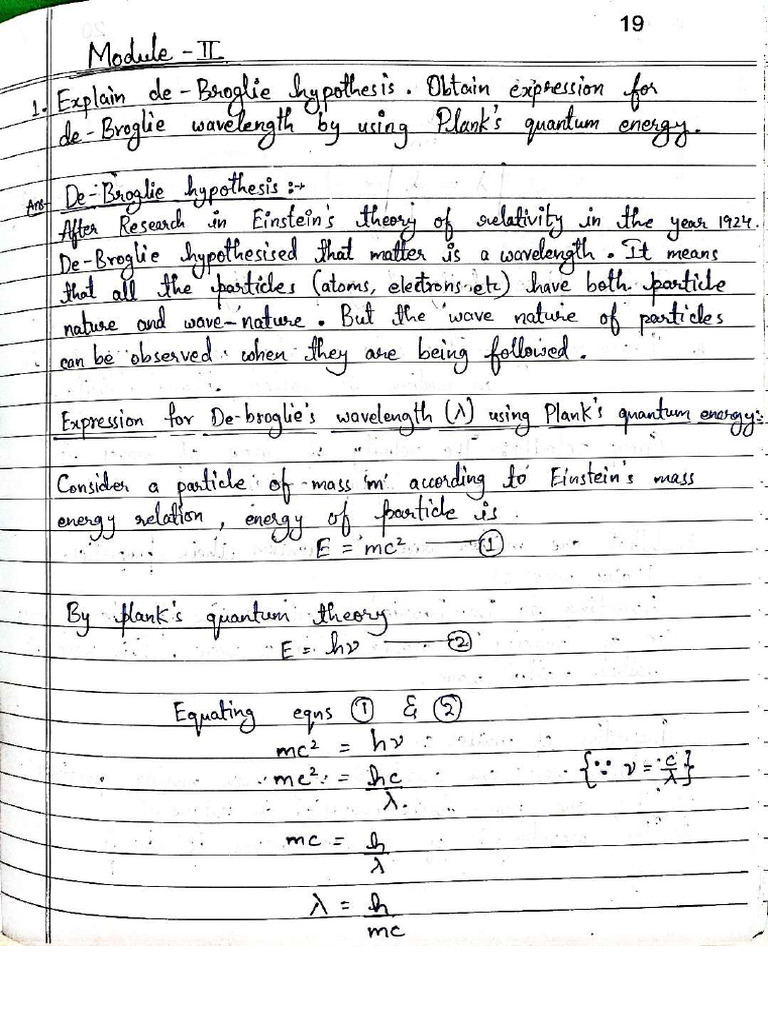 19
Module - II
1. Explain de-Broglie hypothesis. Obtain expression for
de-Broglie wavelength by using Plank's quantum energy.
Ans- De-Broglie hypothesis :→
After Research in Einstein's theory of relativity in the year 1924.
De-Broglie hypothesised that matter is a wavelength. It means
that all the particles (atoms, electrons etc) have both particle
nature and wave-nature. But the wave nature of particles
can be observed when they are being followed.
Expression for De-broglie's wavelength (λ) using Plank's quantum energy:-
Consider a particle of mass 'm' according to Einstein's mass
energy relation, energy of particle is
E = mc² —— ①
By plank's quantum theory
E = hν —— ②
Equating eqns ① & ②
mc² = hν
mc² = hc/λ. {∵ ν = c/λ}
mc = h/λ
λ = h/mc